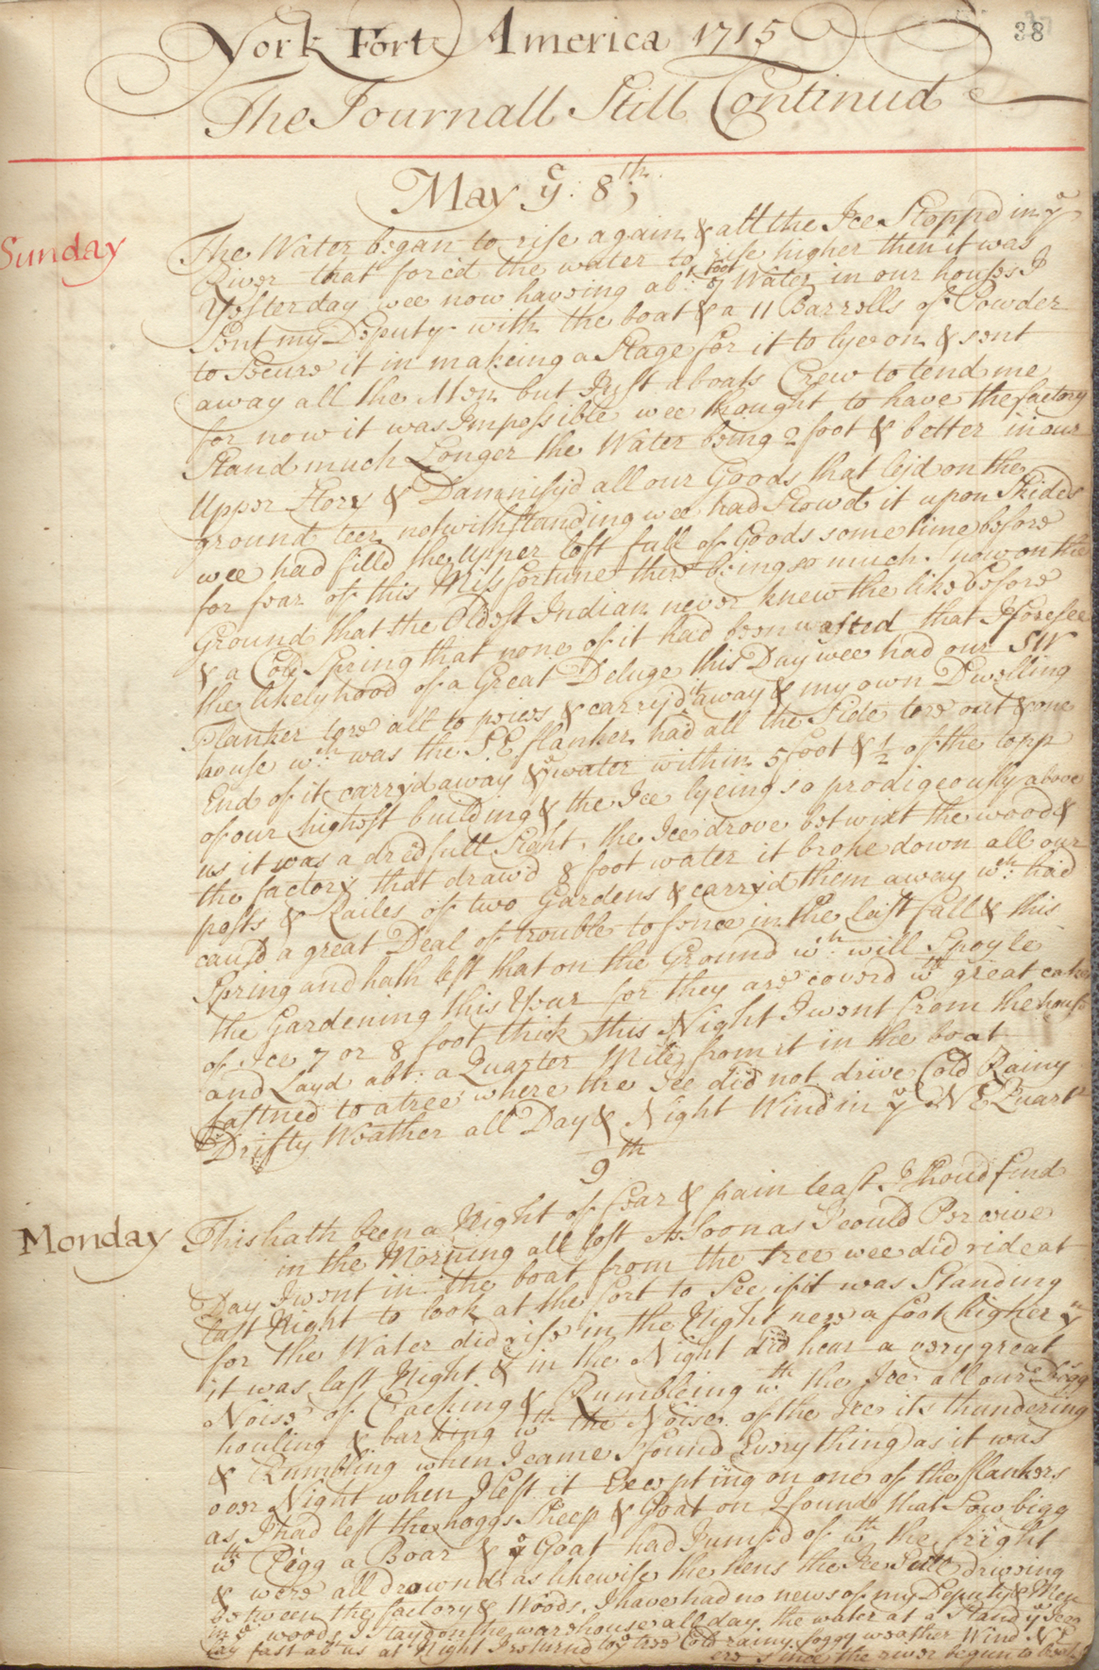 38
York Fort America 1715
The Journall Still Continud
May ye: 8th;
Sunday
The Water began to rise again & all the Ice Stoppd in ye
River that forc'd the water to rise higher then it was
Yesterday wee now haveing abt: 7 foot Water in our houses I
Sent my Deputy with the boat & a 11 Barrells of Powder
to Secure it in makeing a Stage for it to lye on & sent
away all the Men but Just a boats Crew to tend me
for now it was Impossible wee thought to have the factory
Stand much Longer the Water being 2 foot & better in our
Upper Story & Damnifiyd all our Goods that leid on the
ground teer notwithstanding wee had Stowd it upon Skids
wee had filld the Upper loft full of Goods some time before
for fear of this Missfortune there being so much now on the
Ground that the Oldest Indian never knew the like before
& a Cold Spring that none of it had been wasted that I foresee
the likelyhood of a Great Deluge this Day wee had our SW
Flanker tore all to peices & carryd it away & my own Dwelling
house wch was the S.E flanker had all the Side tore out & one
End of it carryd away & ye water within 5 foot & ½ of the topp
of our highest building & the Ice lyeing so prodigeously above
us it was a dredfull Sight, the Ice drove betwixt the wood &
the factory that draw'd 8 foot water it broke down all our
posts & Railes of two Gardens & carryd them away wch: had
causd a great Deal of trouble to fence in the last fall & this
Spring and hath left that on the Ground wch: will Spoyle
the Gardening this Year for they are coverd wth great cakes
of Ice 7 or 8 foot thick this Night I went from the house
and Layd abt: a Quarter Mile from it in the boat
fastned to a tree where the Ice did not drive Cold Rainy
Drifty Weather all Day & Night Wind in ye NE Quartr
9th
Monday
This hath been a Night of fear & pain least I should find
in the Morning all lost As Soon as I could Perceive
Day I went in the boat from the tree wee did ride at
last Night to look at the fort to See if it was Standing
for the Water did rise in the Night near a foot higher yn
it was last Night & in the Night did hear a very great
Noise of Cracking & Rumbleing wth the Ice all our Dogs
houling & barking wth the Noise of the Ice its thundering
& Rumbling when I came I found Everything as it was
over Night when I left it Excepting on one of the flankers
as I had left the hoggs Sheep & Goat on I found that Sow bigg
wth Pigg a Boar & ye Goat had Jumpd of wth the fright
& were all drownd as likewise the hens the Ice Still driveing
between the factory & Woods, I have had no news of my Deputy & Men
in ye woods I stayd on the warehouse all day the water at a Stand ye Ice
lay fast abt us at Night I returnd to ye tree Cold rainy foggy weather Wind NE
ere since the river begun to